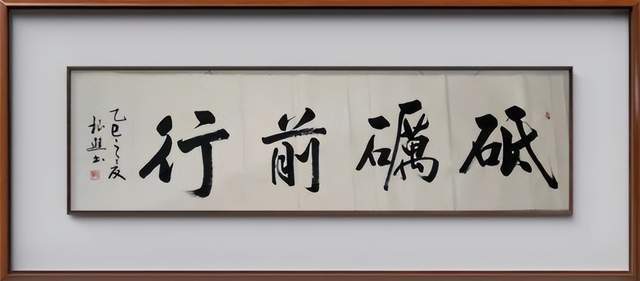 砥礪前行
乙巳之夏
书